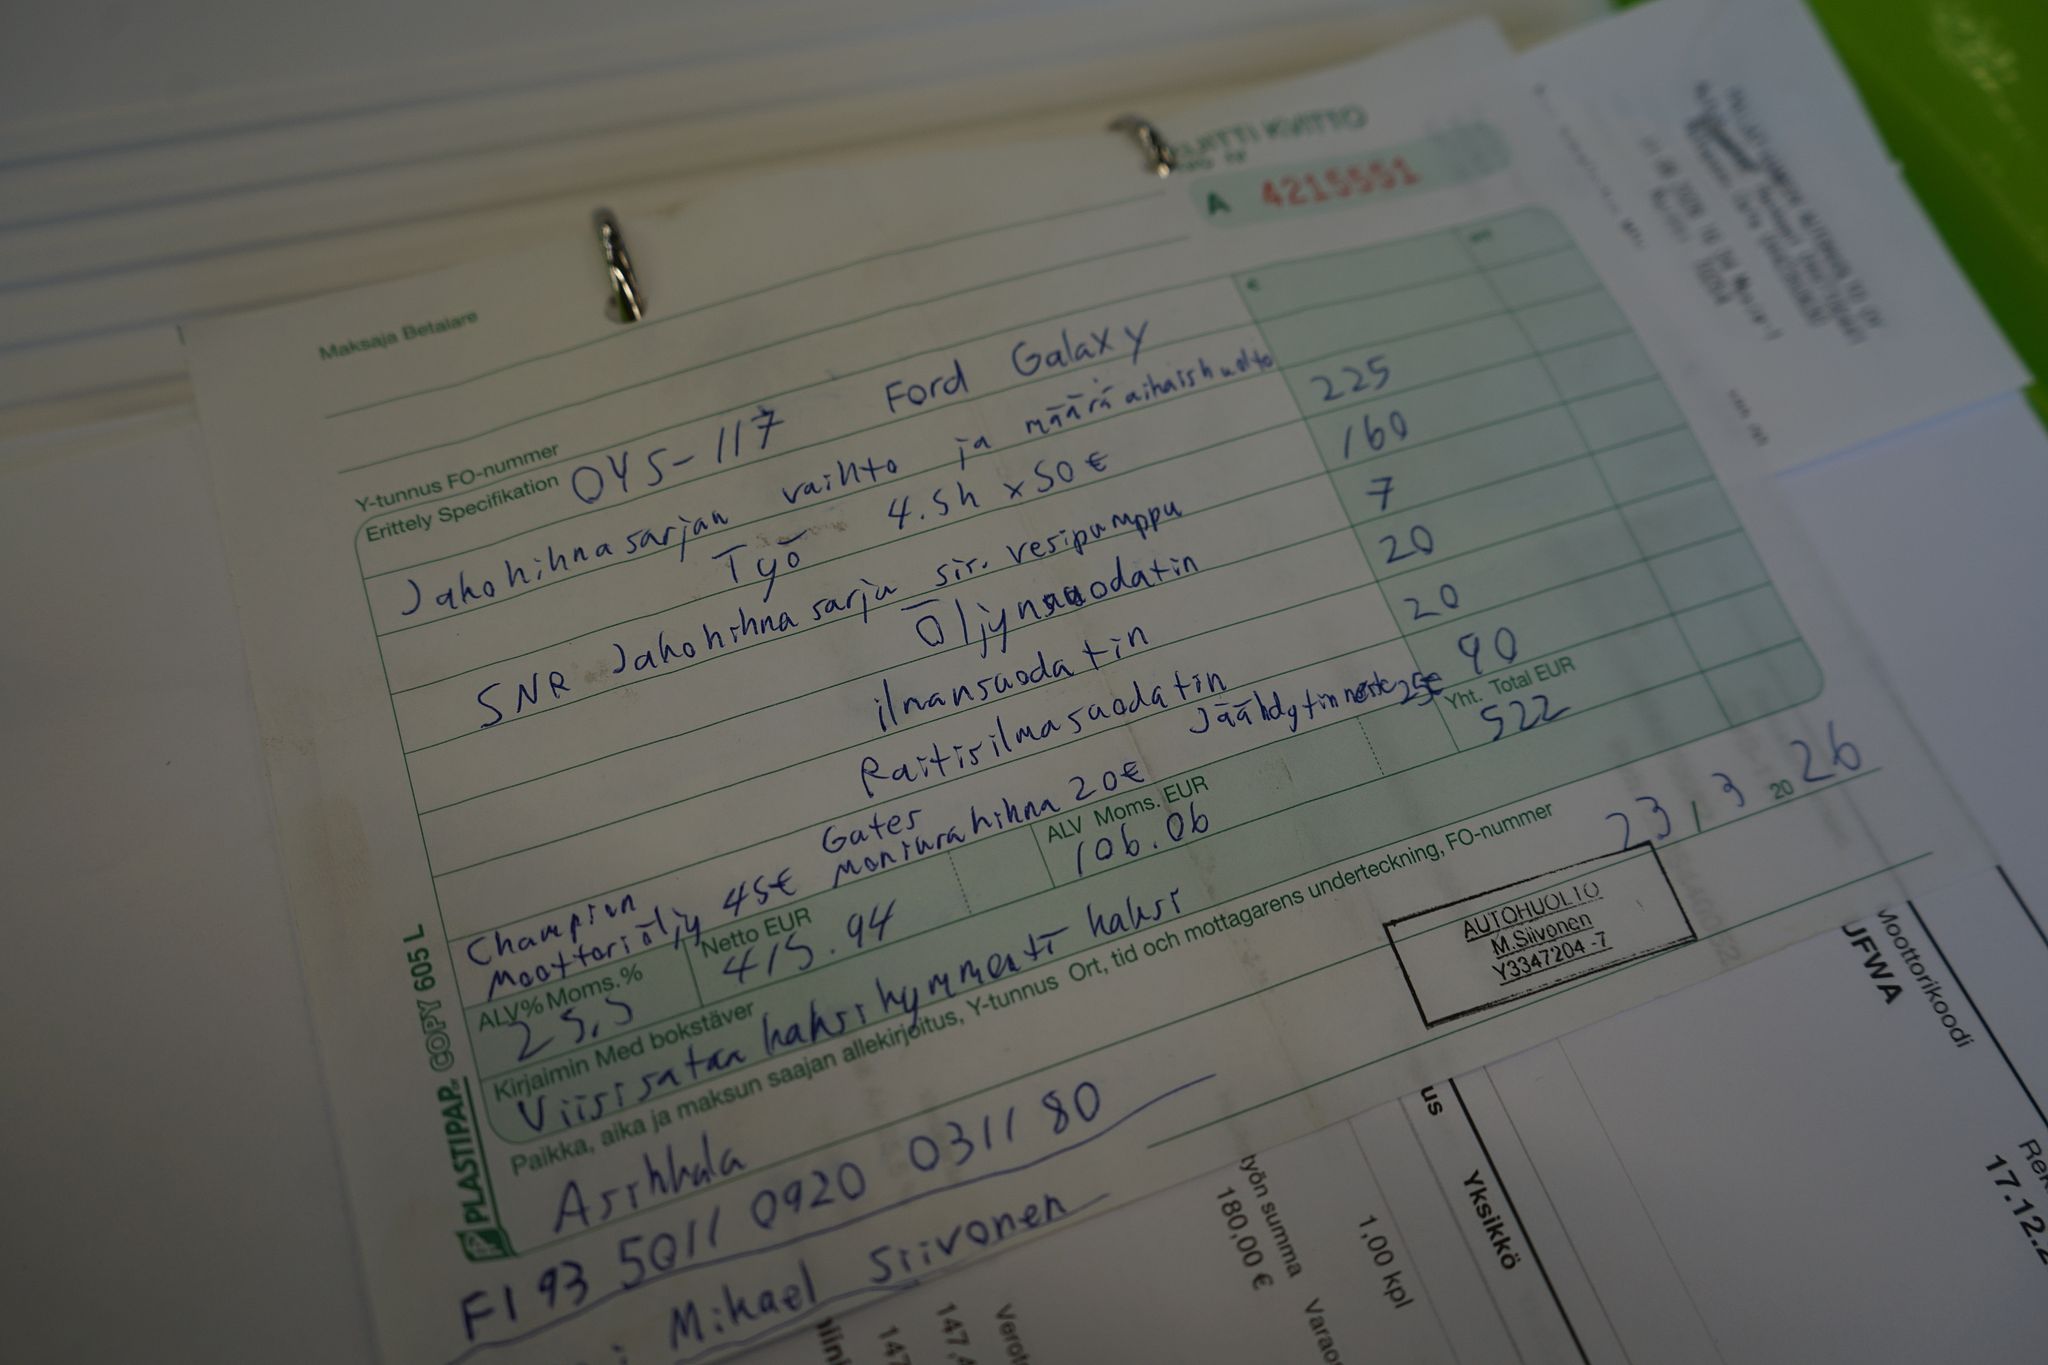 KUITTI KVITTO
A 4215551
Maksaja Betalare
Y-tunnus FO-nummer
Erittely Specifikation OYS-117 Ford Galaxy
€
Jakohihnasarjan vaihto ja määräaikaishuolto
Työ 4.5h x 50€ 225
SNR Jakohihnasarja sis. vesipumppu 160
Öljynsuodatin 7
ilmansuodatin 20
Raitisilmasuodatin 20
Jäähdytinneste 25€ 90
Champion Moottoriöljy 45€ Gates moniurahihna 20€
Yht. Total EUR
522
ALV% Moms.% 25,5
Netto EUR 415.94
ALV Moms. EUR 106.06
Kirjaimin Med bokstäver
Viisisataa kaksikymmentä kaksi
Paikka, aika ja maksun saajan allekirjoitus, Y-tunnus Ort, tid och mottagarens underteckning, FO-nummer
Asikkala 23/3 2026
AUTOHUOLTO
M.Siivonen
Y3347204-7
FI93 5011 0920 0311 80
Mikael Siivonen
PLASTIPAP. COPY 605 L
Moottorikoodi
UFWA
17.12.2
us
Yksikkö
1,00 kpl
työn summa
180,00 €
147,4
147